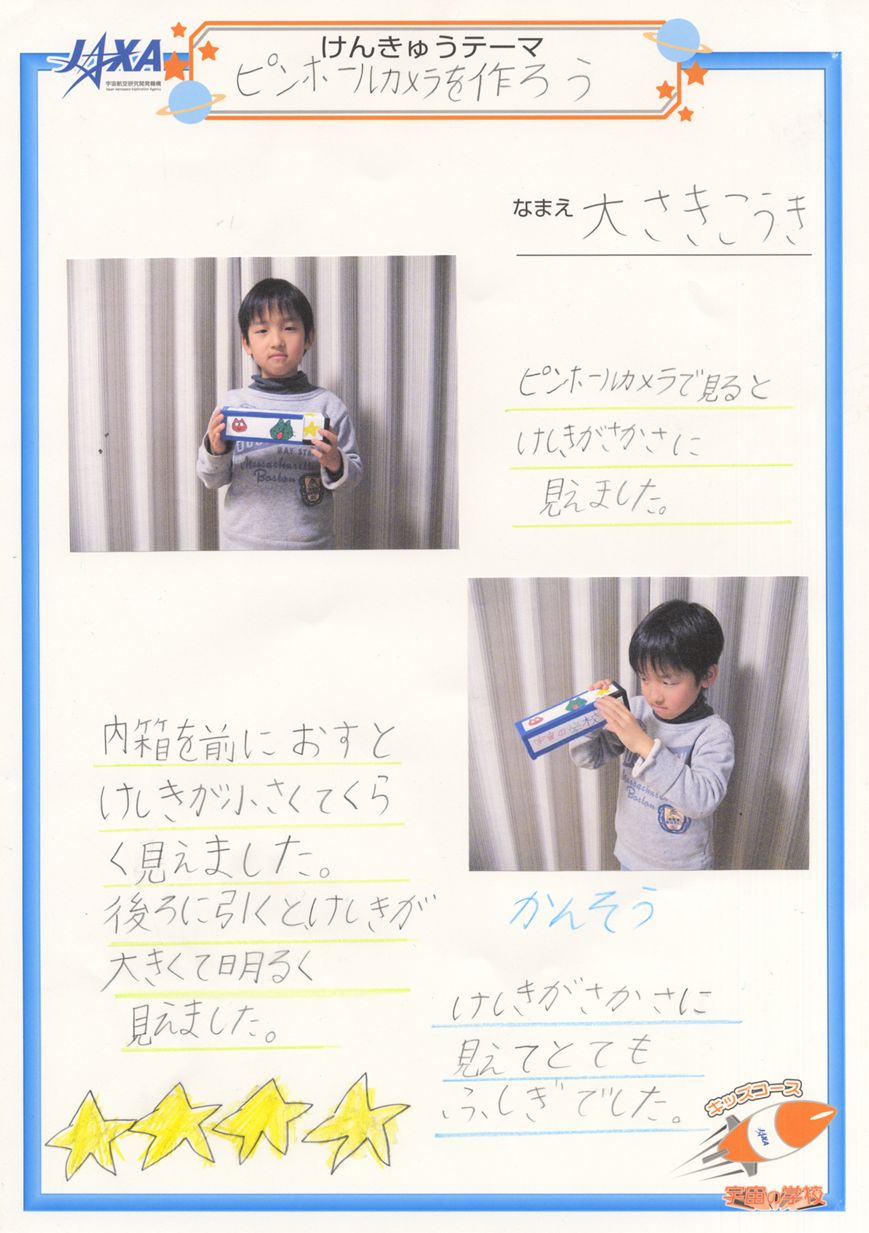 JAXA
宇宙航空研究開発機構
Japan Aerospace Exploration Agency
けんきゅうテーマ
ピンホールカメラを作ろう
なまえ 大さきこうき
Massachusetts
Boston
ピンホールカメラで見ると
けしきがさかさに
見えました。
内箱を前におすと
けしきが小さくてくら
く見えました。
後ろに引くと、けしきが
大きくて明るく
見えました。
かんそう
けしきがさかさに
見えてとても
ふしぎでした。
キッズコース
JAXA
宇宙の学校